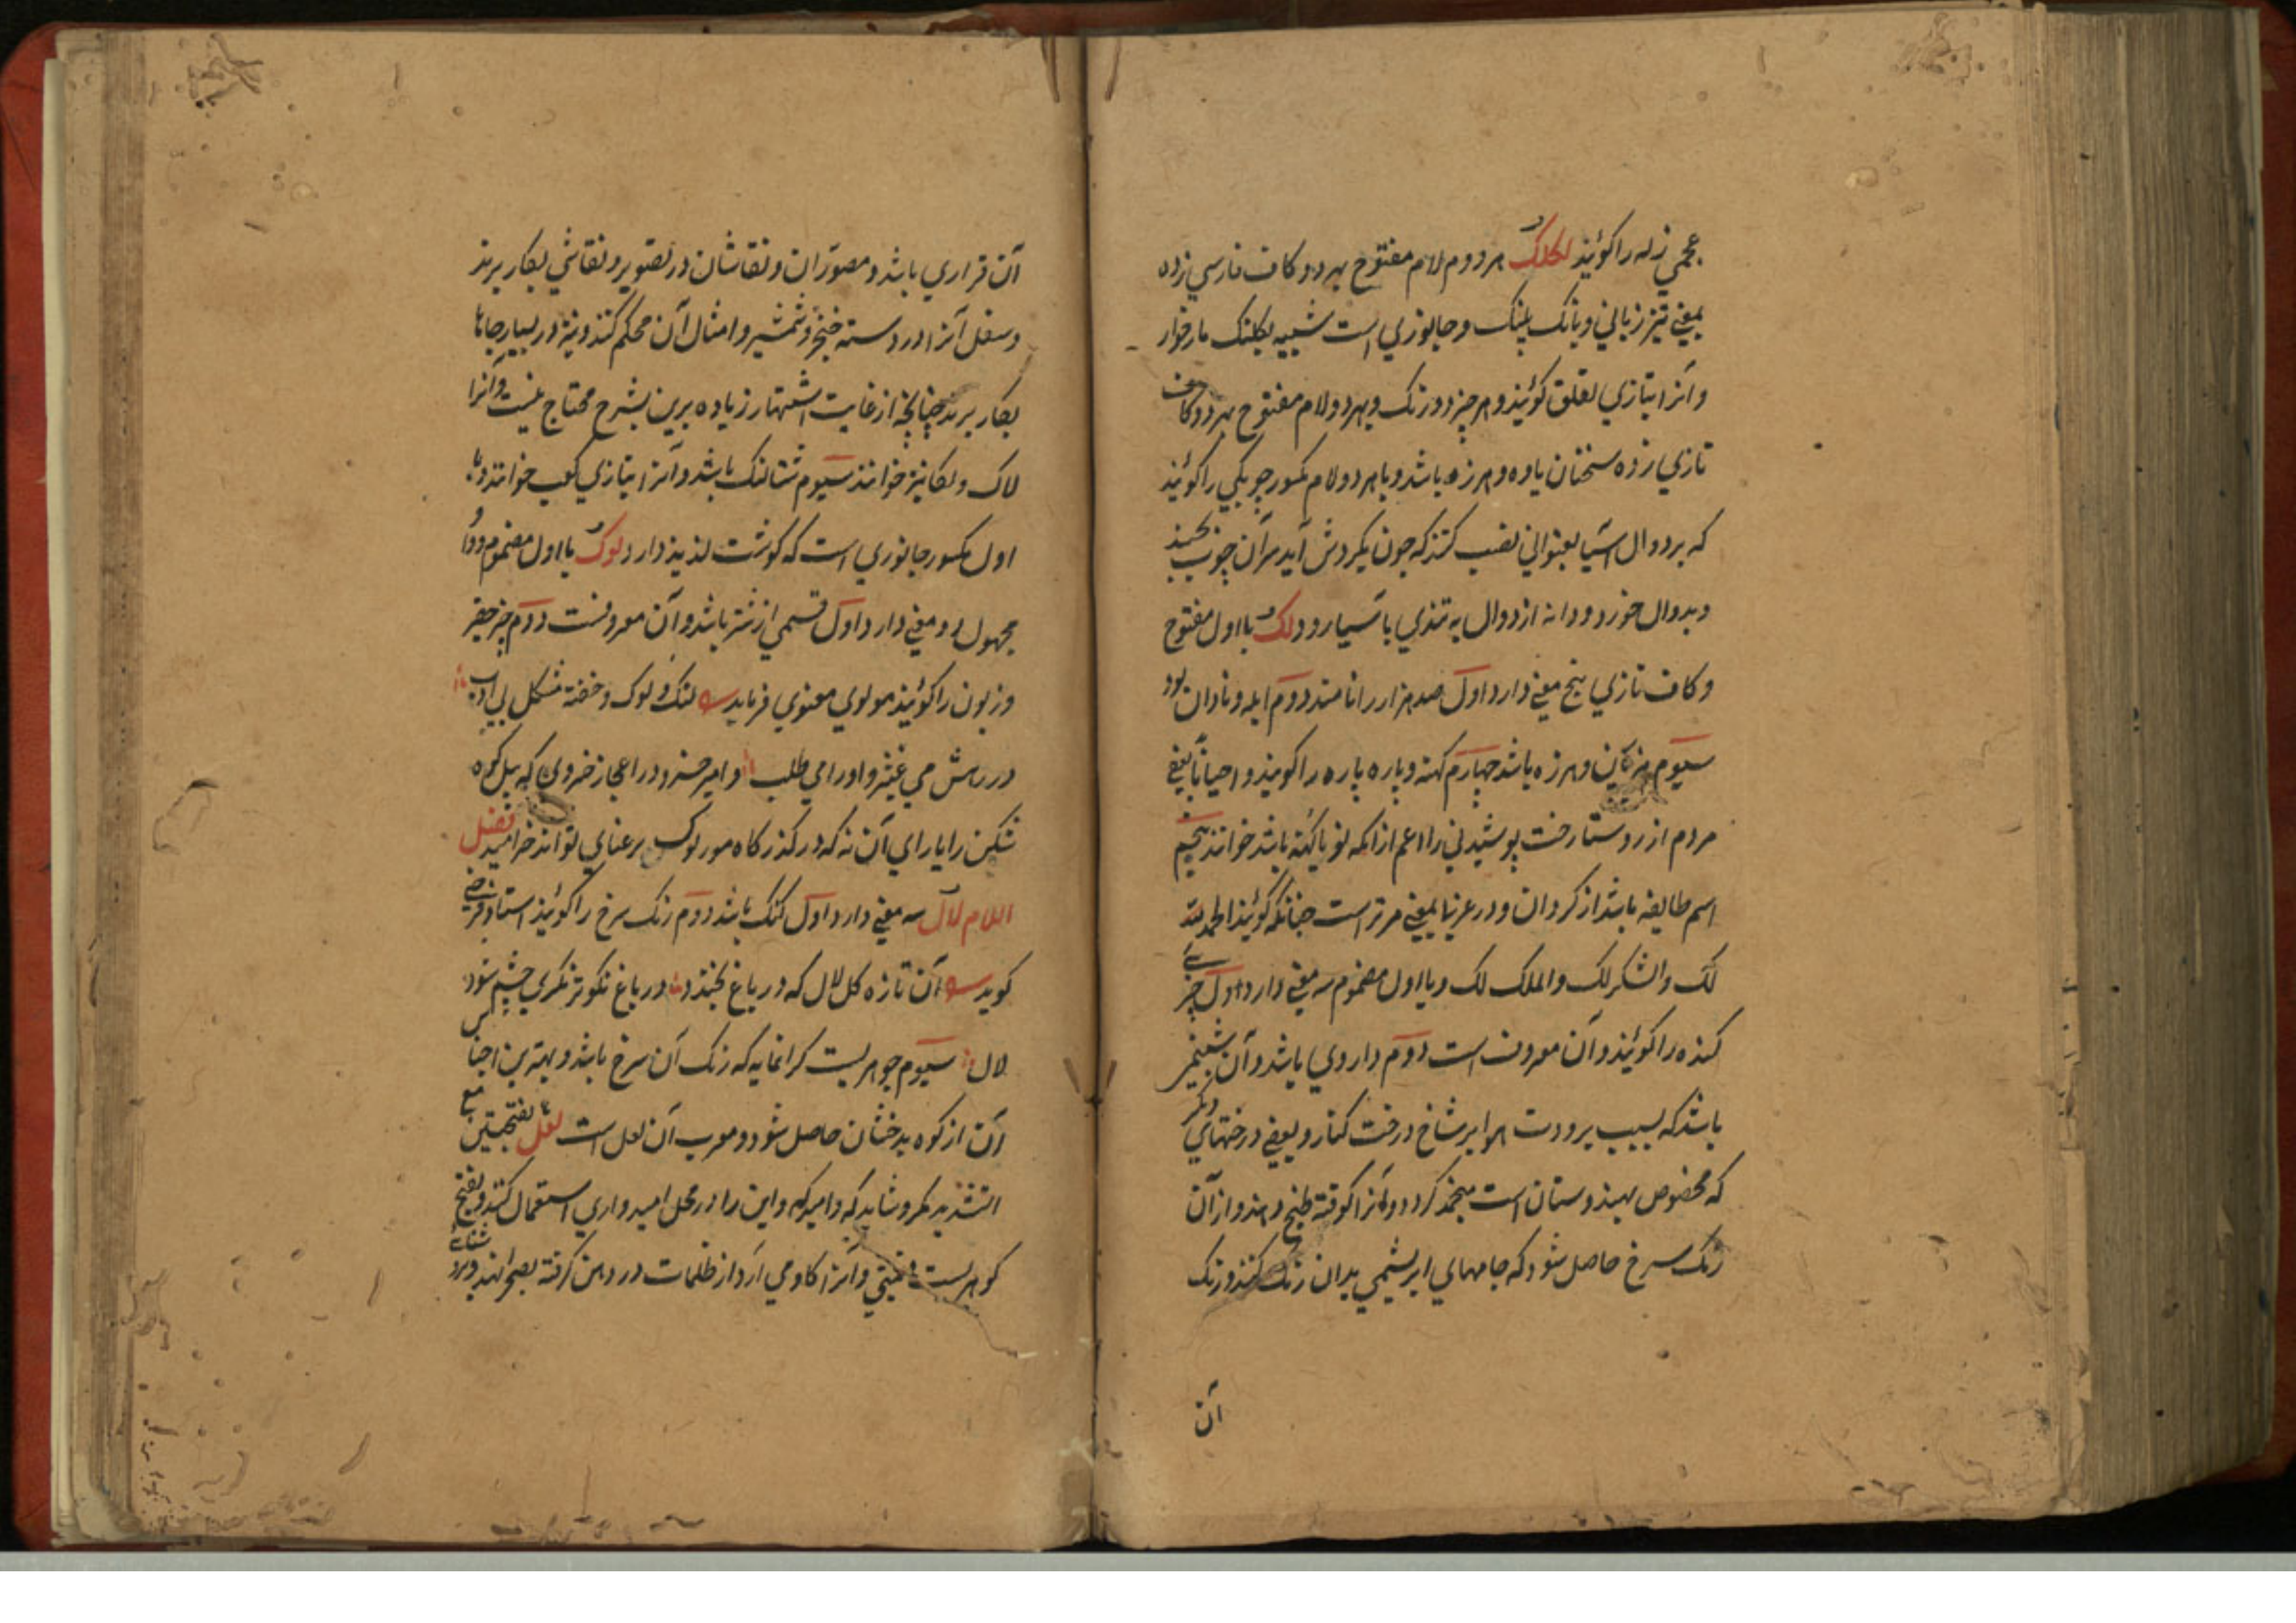 عجمي زله را گوئيند لکلک هر دوم لام مفتوح بهر دو کاف فارسي زده
بمعني تيز زباني و بانک پلنک و جانوري است شبيه بکلنک مارخوار
و آنرا بتازي لقلق گوئيند و هر چيز دورنک و بهر دو لام مفتوح بهر دو کاف
تازي زده سخنان ياوه و هرزه باشد و با هر دو لام مکسور چوبکي را گوئيند
که بر دوال آسيا بعنواني نصب کنند که چون بگردش آيد سر آن چوب بجنبد
و بدوال خورد و دانه از دوال به تندي باسيا رود لک با اول مفتوح
و کاف تازي پنج معني دارد اول صد هزار را نامند دوم ابله و نادان بود
سيوم هذيان و هرزه باشد چهارم کهنه و پاره پاره را گويند و احيانا بعني
مردم از روستا رخت پوشيدني را اعم از انکه نو يا کهنه باشد خوانند پنجم
اسم طايفه باشد از کردان و در عربي بمعني مر تراست چنانکه گوئيند الحمد لله
لک و الشکر لک و الملک لک و با اول مضموم سه معني دارد اول چيزي
کنده را گوئيند و آن معروف است دوم داروي باشد و آن شبنمي
باشد که بسبب برودت هوا بر شاخ درخت کنار و بعضي درختهاي ديگر
که مخصوص بهندوستان است منجمد گردد و آنرا کوفته طبخ دهند و از آن
رنک سرخ حاصل شود که جامهاي ابريشمي بدان رنک کنند و رنک
آن
آن قراري باشد و مصوران و نقاشان در تصوير و نقاشي بکار برند
و سفل آنرا در دسته خنجر و شمشير و امثال آن محکم کنند و نيز در بسيار جاها
بکار برند چنانچه از غايت اشتهار زياده برين بشرح محتاج نيست و آنرا
لاک و لکا نيز خوانند سيوم شتالنک باشد و آنرا بتازي کعب خوانند و با
اول مکسور جانوري است که گوشت لذيذ دارد لوک با اول مضموم و واو
مجهول دو معني دارد اول قسمي از شتر باشد و آن معروفست دوم چيز حقير
و زبون را گوئيند مولوي معنوي فرمايد لنک و لوک و خفته شکل بي ادب
در رهش مي غيژ و او را مي طلب و امير خسرو در اعجاز خسروي که پيل کوه
شکن را ياراي آن نه که در گذرگاه مور لوک برعنائي تواند خراميد فصل
اللام لال سه معني دارد اول گنک باشد دوم رنک سرخ را گوئيند استاد فرخي
گويد آن تازه گل لال که در باغ بخندد در باغ نکوتر نگري چشم شود
لال سيوم جوهريست گرانمايه که رنک آن سرخ باشد و بهترين اجناس
آن از کوه بدخشان حاصل شود و معرب آن لعل است لعل بفتحتين مع
التشديد مکر و شايد که و اميد که و اين را در محل اميدواري استعمال کنند و بفتح
گوهريست قيمتي و آنرا گاو مي آرد از ظلمات در دهن گرفته بصحرا نهد و برد